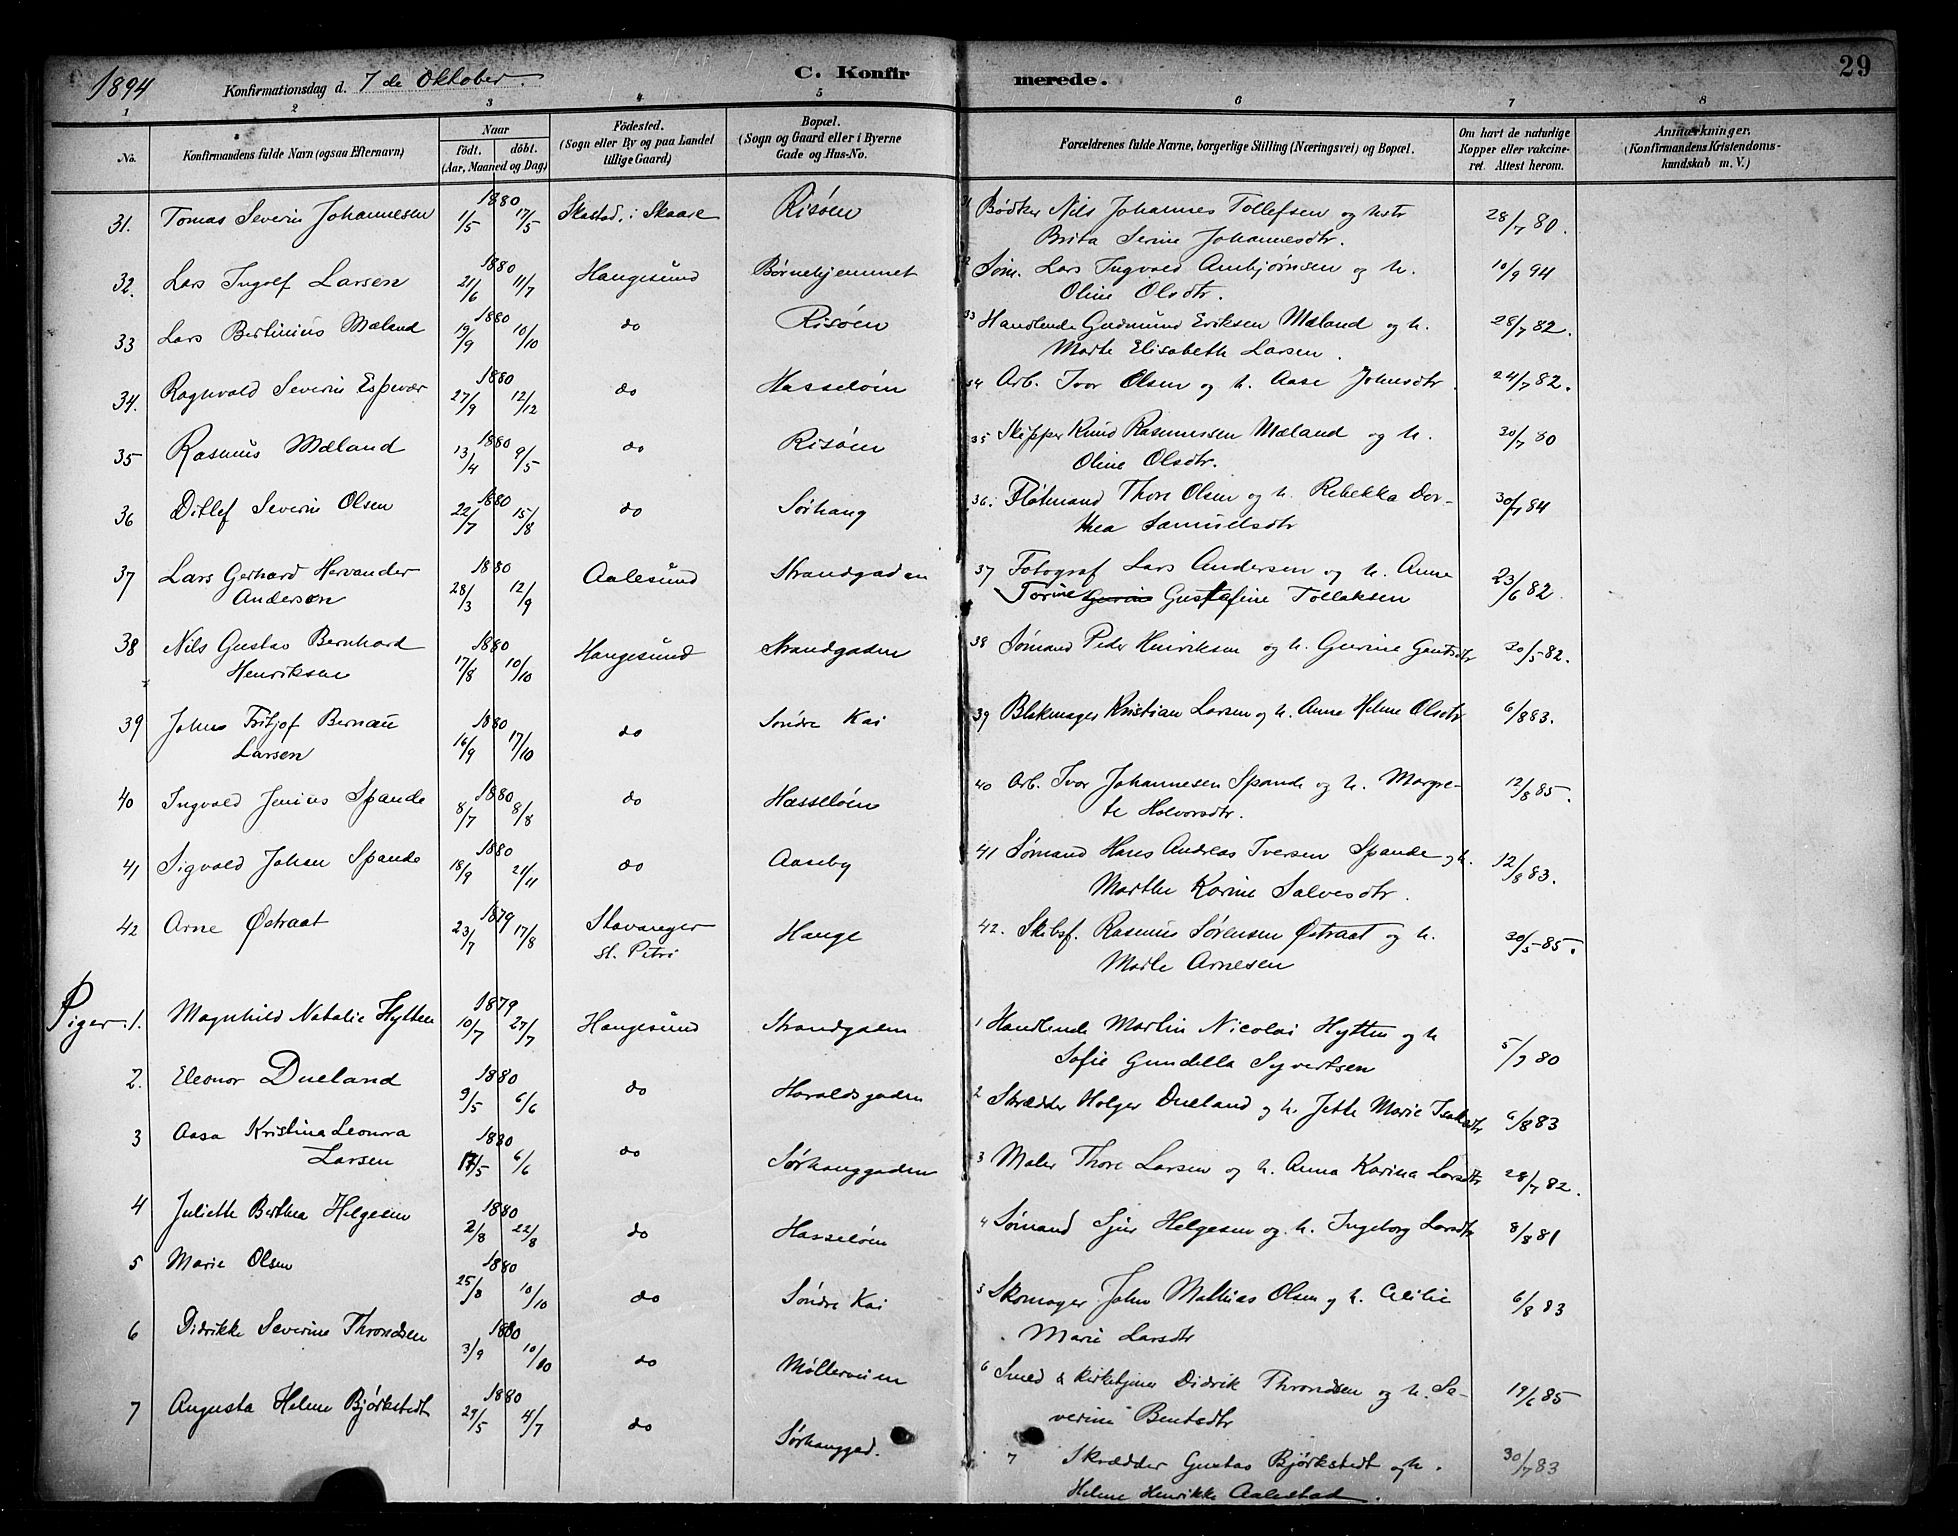 1894 Konfirmationsdag d. 7 de Oktober. C. Konfirmerede. 29
1 2 3 4 5 6 7 8
No. Konfirmandens fulde Navn (ogsaa Efternavn) Naar født. døbt. (Aar, Maaned og Dag) Fødested. (Sogn eller By og paa Landet tillige Gaard) Bopæl. (Sogn og Gaard eller i Byerne Gade og Hus-No. Forældrenes fulde Navne, borgerlige Stilling (Næringsvei) og Bopæl. Om havt de naturlige Kopper eller vakcineret. Attest herom. Anmærkninger. (Konfirmandens Kristendomskundskab m. V.)
31. Tomas Severin Johannesen 1880 1/5 17/5 Skastad i Skaare Risøen 31 Bødker Nils Johannes Tollefsen og hstr 28/7 80.
Brita Serine Johannesdtr.
32. Lars Ingolf Larsen 1880 21/6 11/7 Haugesund Børnehjemmet Søm. Lars Ingvald Ambjørnsen og h. 10/9 94
Oline Olsdtr.
33 Lars Bertinius Mæland 1880 19/9 10/10 do Risøen 33 Handlende Gudmund Eriksen Mæland og h. 28/7 82.
Marte Elisabeth Larsen.
34. Ragnvald Severin Espevær 1880 27/9 12/12 do Hasseløen 34 Arb. Ivar Olsen og h. Aase Johnsdtr. 24/7 82.
35 Rasmus Mæland 1880 13/4 9/5 do Risøen 35 Skipper Knud Rasmussen Mæland og h. 30/7 80
Oline Olsdtr.
36 Ditlef Severin Olsen 1880 22/7 15/8 do Sørhaug 36. Fløtmand Thore Olsen og h. Rebekka Dor- 30/7 94
thea Samuelsdtr
37 Lars Gerhard Hervander 1880 28/3 12/9 Aalesund Strandgaden 37 Fotograf Lars Andersen og h. Anne 23/6 82.
Andersen Torine Gustafine Tollaksen
38 Nils Gustav Bernhard 1880 17/8 10/10 Haugesund Strandgaden 38 Sømand Peder Henriksen og h. Gurine Gautsdtr 30/5-82.
Henriksen
39 Johns Fritjof Bernau 1880 16/9 17/10 do Søndre Kai 39 Blikmager Kristian Larsen og h. Anne Helene Olsdtr 6/8 83.
Larsen
40 Ingvald Jenius Spande 1880 8/7 8/8 do Hasseløen 40 Arb. Ivar Johannesen Spande og h. Margre- 12/8 85.
te Halvorsdtr.
41 Sigvald Johan Spande 1880 18/9 21/11 do Aaseby 41 Sømand Hans Andreas Iversen Spande og h. 12/8 83.
Marthe Karine Salvesdtr.
42 Arne Østraat 1879 23/7 17/8 Stavanger Hauge 42. Skibsf. Rasmus Sørensen Østraat og h. 30/5-85.
St. Petri Marte Arnesen
Piger. 1. Magnhild Natalie Hytten 1879 10/7 27/7 Haugesund Strandgaden 1 Handlende Martin Nicolai Hytten og h 5/7 80
Sofie Gundella Syvertsen
2. Eleonor Dueland 1880 9/5 6/6 do Haraldsgaden 2 Skrædder Holger Dueland og h. Jette Marie Isaksdtr 6/8 83
3 Aasa Kristina Leonora 1880 17/5 6/6 do Sørhauggaden 3 Maler Thore Larsen og h. Anna Karina Larsdtr 28/7 82.
Larsen
4 Juliette Berthea Helgesen 1880 2/8 22/8 do Hasseløen 4 Sømand Sjur Helgesen og h. Ingeborg Larsdtr 8/8 81
5 Marie Olsen 1880 25/8 10/10 do Søndre Kai 5 Skomager John Mathias Olsen og h. Cecilie 6/8 83
Marie Larsdtr
6 Didrikke Severine Throndsen 1880 3/9 10/10 do Møllerveien 6 Smed & Kirketjener Didrik Throndsen og h. Se- 19/6 85
verine Bentsdtr
7 Augusta Helene Bjørkstedt 1880 29/5 4/7 do Sørhauggad. 7 Skrædder Gustav Bjørkstedt og h. 30/7 83
Helene Henrikke Aalestad.